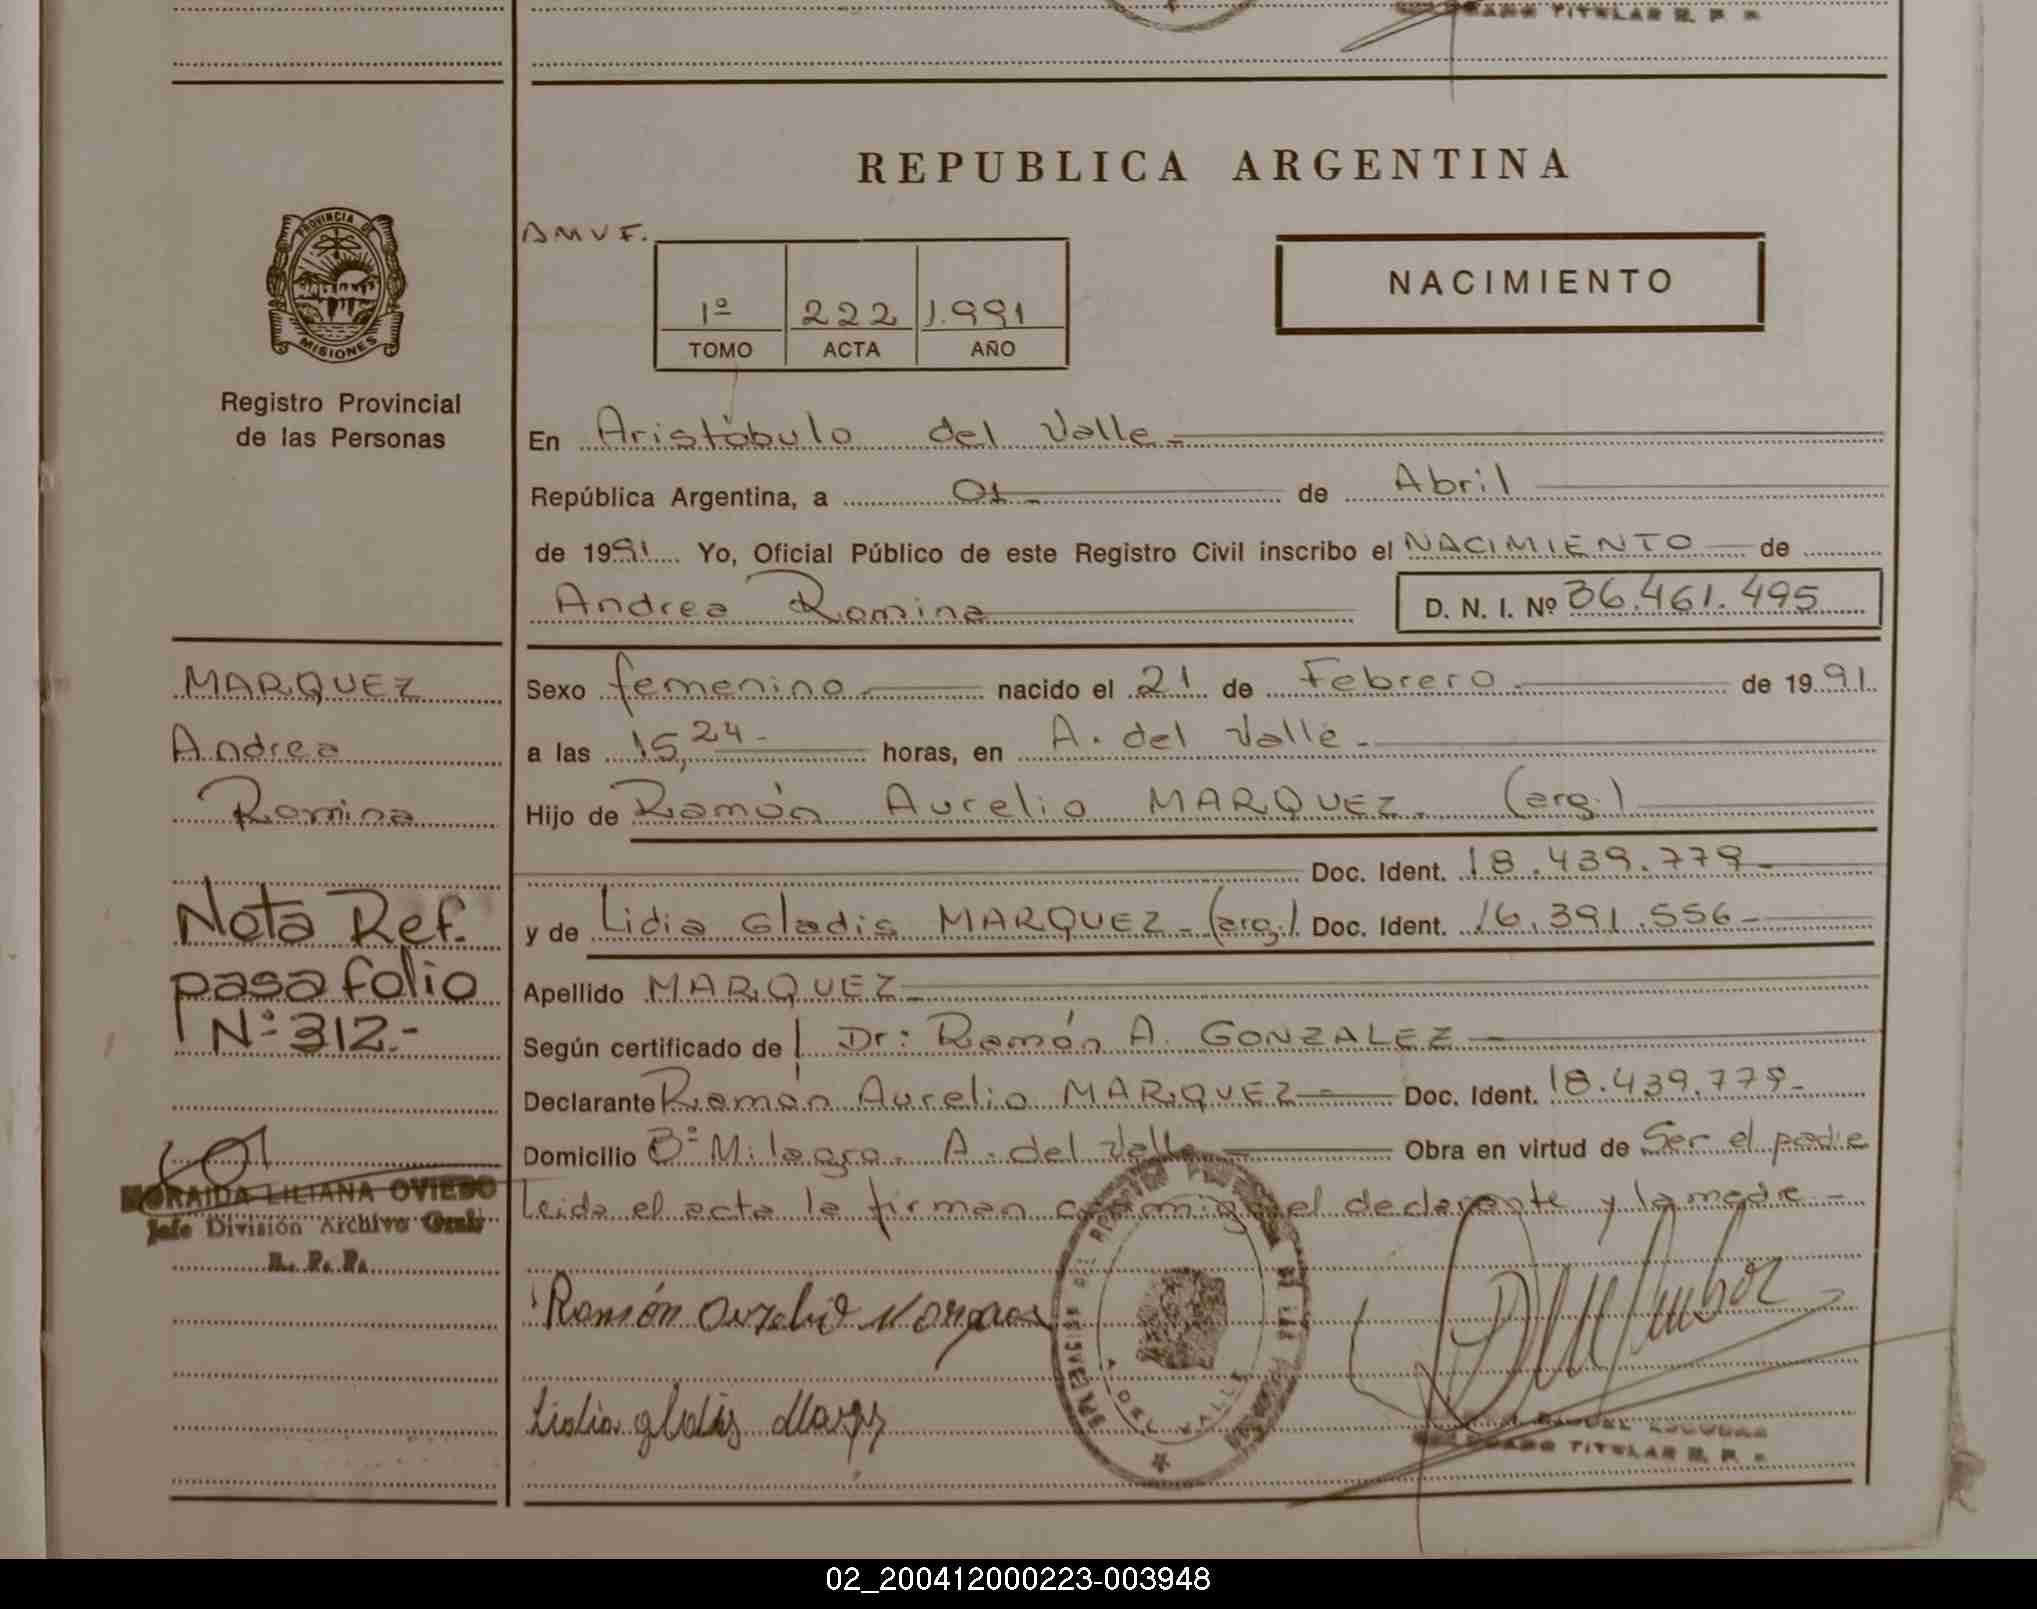 TITULAR R. P. P.
REPUBLICA ARGENTINA
PROVINCIA DE
MISIONES
Registro Provincial
de las Personas
AMVF.
1º 222 1.991
TOMO ACTA AÑO
NACIMIENTO
En Aristóbulo del Valle.-
República Argentina, a 01.- de Abril
de 1991 Yo, Oficial Público de este Registro Civil inscribo el NACIMIENTO de
Andrea Romina
D. N. I. Nº 36.461.495
MARQUEZ
Andrea
Romina
Nota Ref.
pasa folio
Nº 312.-
NORAIDA LILIANA OVIEDO
Jefe División Archivo Gral.
R. P. P.
Sexo femenino nacido el 21 de Febrero de 1991.
a las 15,24.- horas, en A. del Valle.-
Hijo de Ramón Aurelio MARQUEZ. (arg.)
Doc. Ident. 18.439.779.-
y de Lidia Gladis MARQUEZ.- (arg.) Doc. Ident. 16.391.556.-
Apellido MARQUEZ.-
Según certificado de Dr: Ramón A. GONZALEZ
Declarante Ramón Aurelio MARQUEZ.- Doc. Ident. 18.439.779.-
Domicilio Bº Milagro. A. del Valle.- Obra en virtud de Ser el padre
leida el acta la firman conmigo el declarante y la madre.-
Ramón
Lidia gladis
A. DEL VALLE
TITULAR R. P. P.
02_200412000223-003948